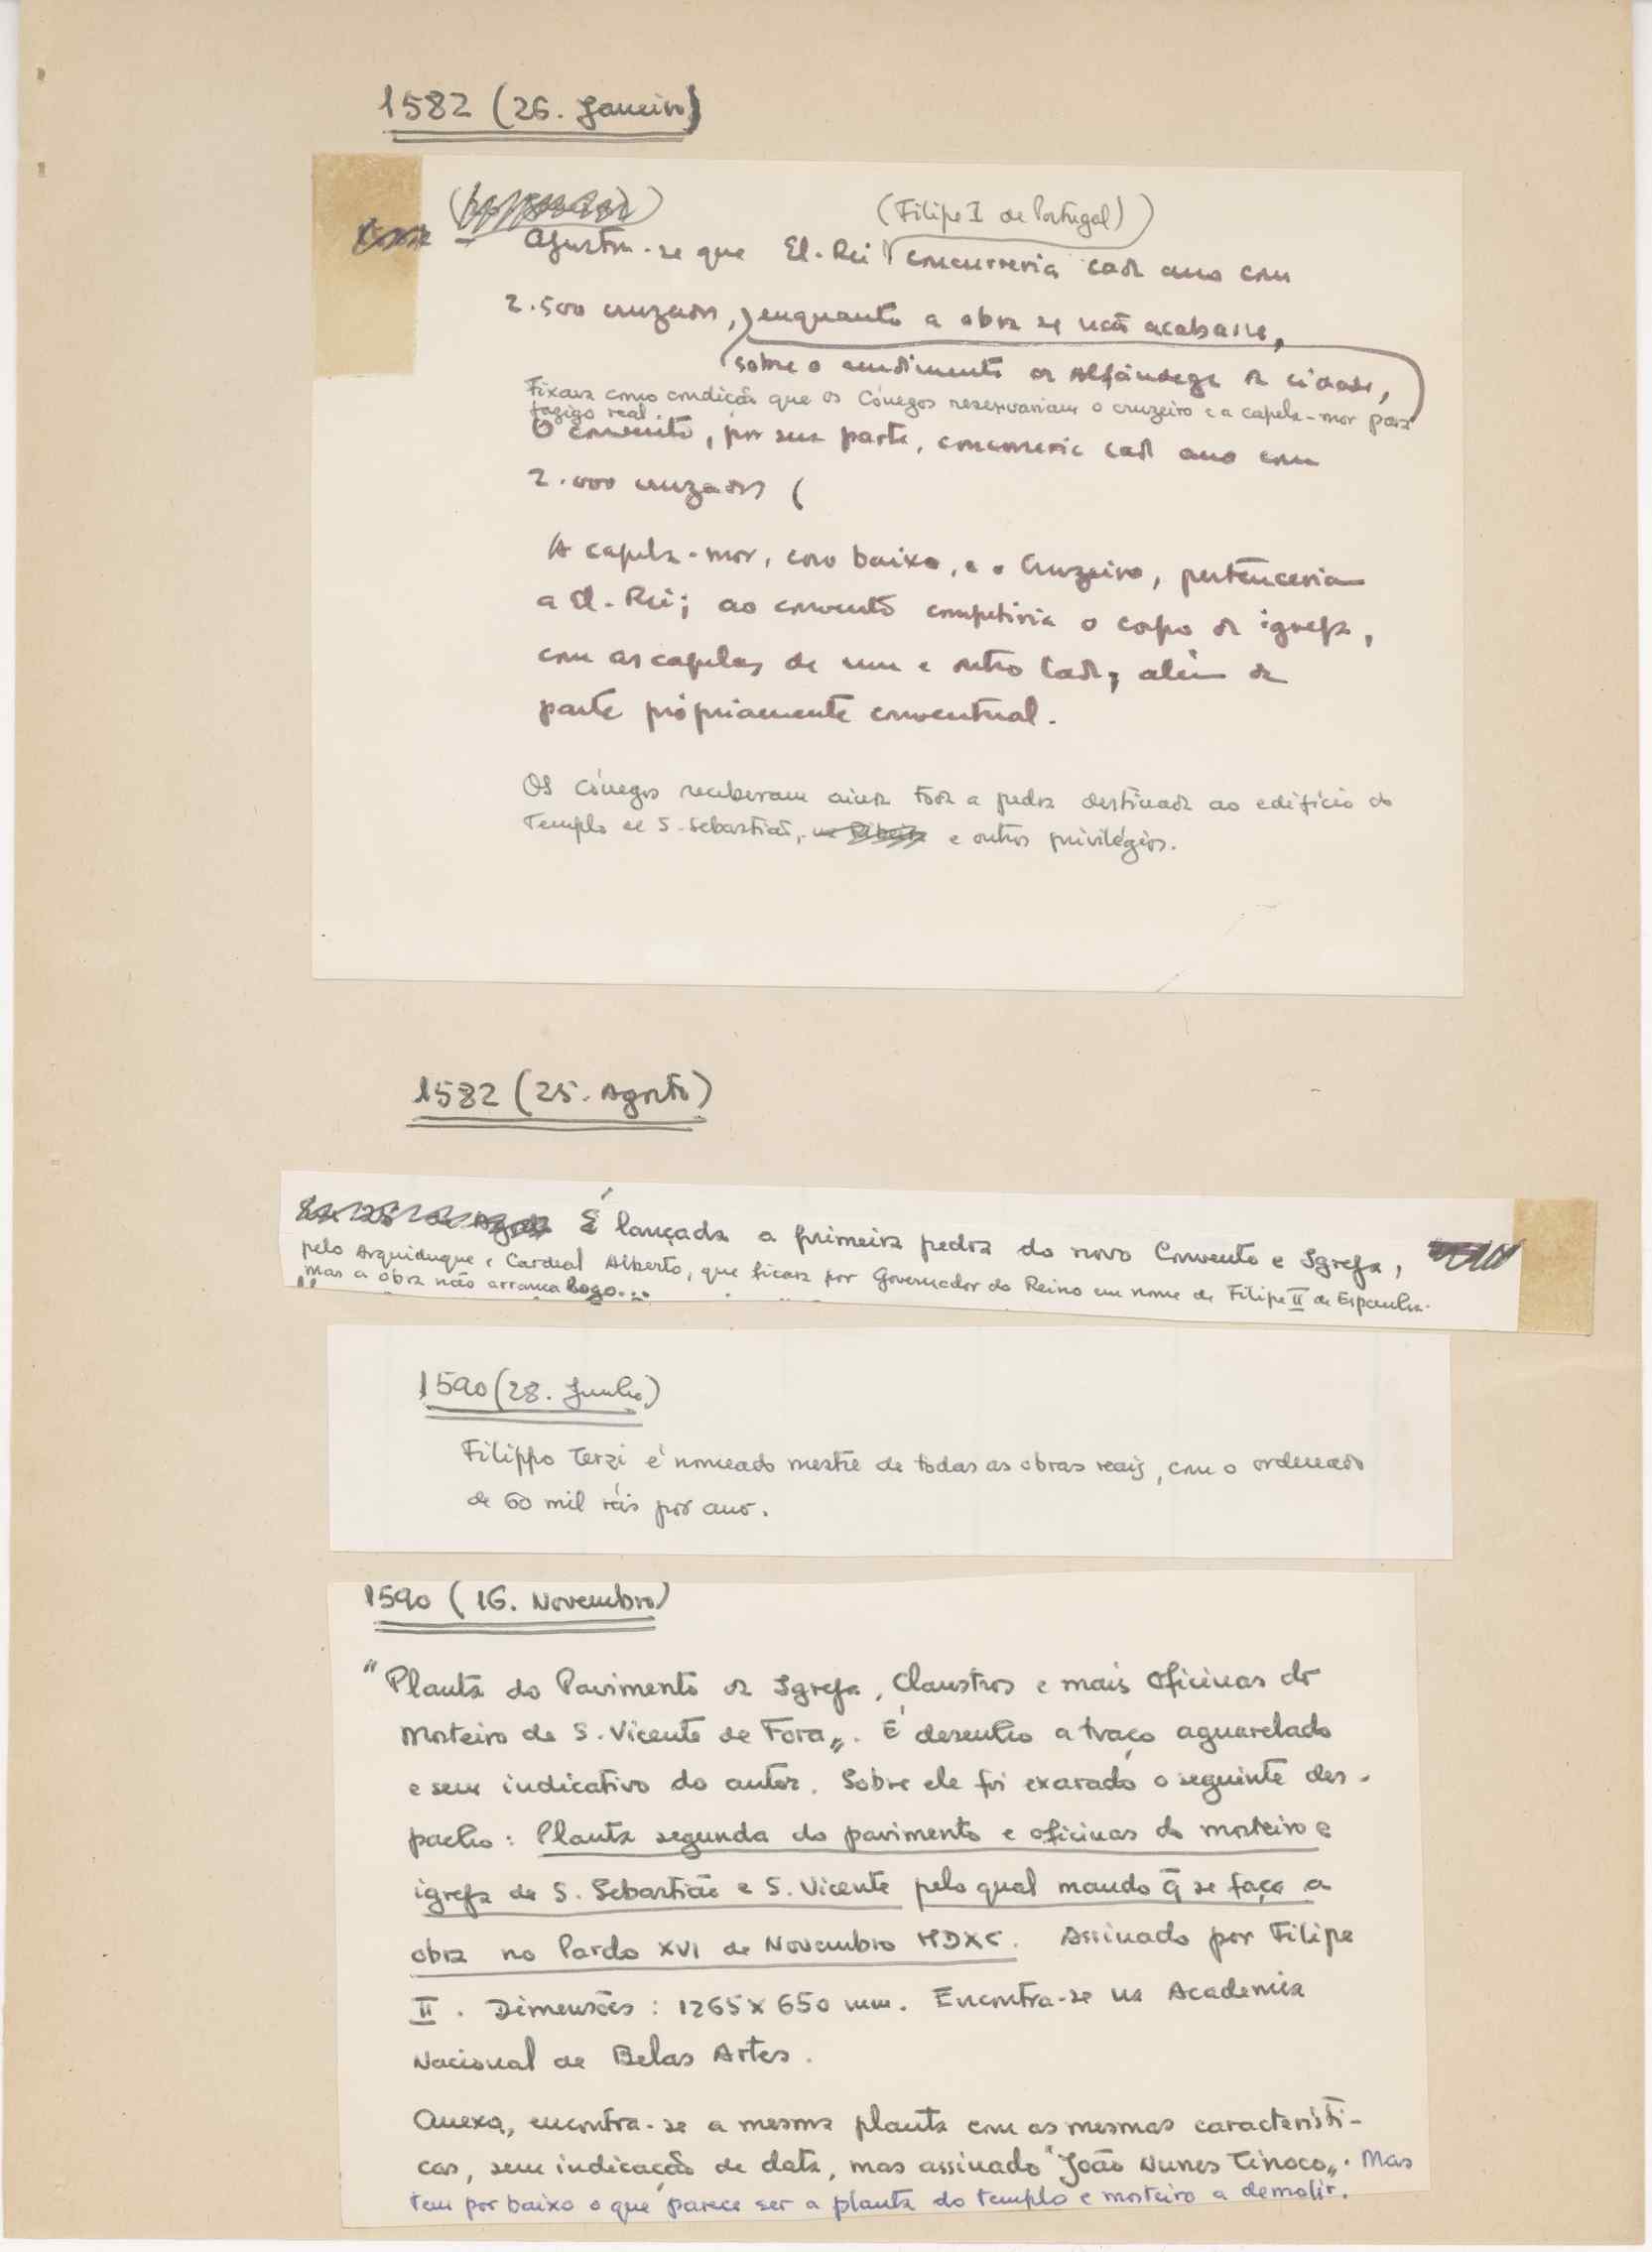 1582 (26. Janeiro)
(Filipe I de Portugal)
Ajustou-se que El-Rei concorreria cada ano com
2.500 cruzados, enquanto a obra se não acabasse,
sobre o rendimento da Alfândega da cidade,
Fixava como condição que os Cónegos reservariam o cruzeiro e a capela-mor para
jazigo real.
O convento, por sua parte, concorreria cada ano com
2.000 cruzados (
A capela-mor, coro baixo, e o Cruzeiro, pertenceriam
a El-Rei; ao convento competiria o corpo da igreja,
com as capelas de um e outro lado, além da
parte própriamente conventual.
Os Cónegos receberam ainda toda a pedra destinada ao edifício do
Templo de S. Sebastião, e outros privilégios.
1582 (25. Agosto)
É lançada a primeira pedra do novo Convento e Igreja,
pelo Arquiduque e Cardeal Alberto, que ficara por Governador do Reino em nome de Filipe II de Espanha.
mas a obra não arranca logo...
1590 (28. Junho)
Filippo Terzi é nomeado mestre de todas as obras reais, com o ordenado
de 60 mil réis por ano.
1590 (16. Novembro)
"Planta do Pavimento da Igreja, Claustros e mais Oficinas do
Mosteiro de S. Vicente de Fora„. É desenho a traço aguarelado
e sem indicativo do autor. Sobre ele foi exarado o seguinte des-
pacho: Planta segunda do pavimento e oficinas do mosteiro e
igreja de S. Sebastião e S. Vicente pelo qual mando q̄ se faça a
obra no Pardo XVI de Novembro MDXC. Assinado por Filipe
II. Dimensões: 1265 x 650 mm. Encontra-se na Academia
Nacional de Belas Artes.
Anexa, encontra-se a mesma planta com as mesmas característi-
cas, sem indicação de data, mas assinado "João Nunes Tinoco„. Mas
tem por baixo o que parece ser a planta do templo e mosteiro a demolir.